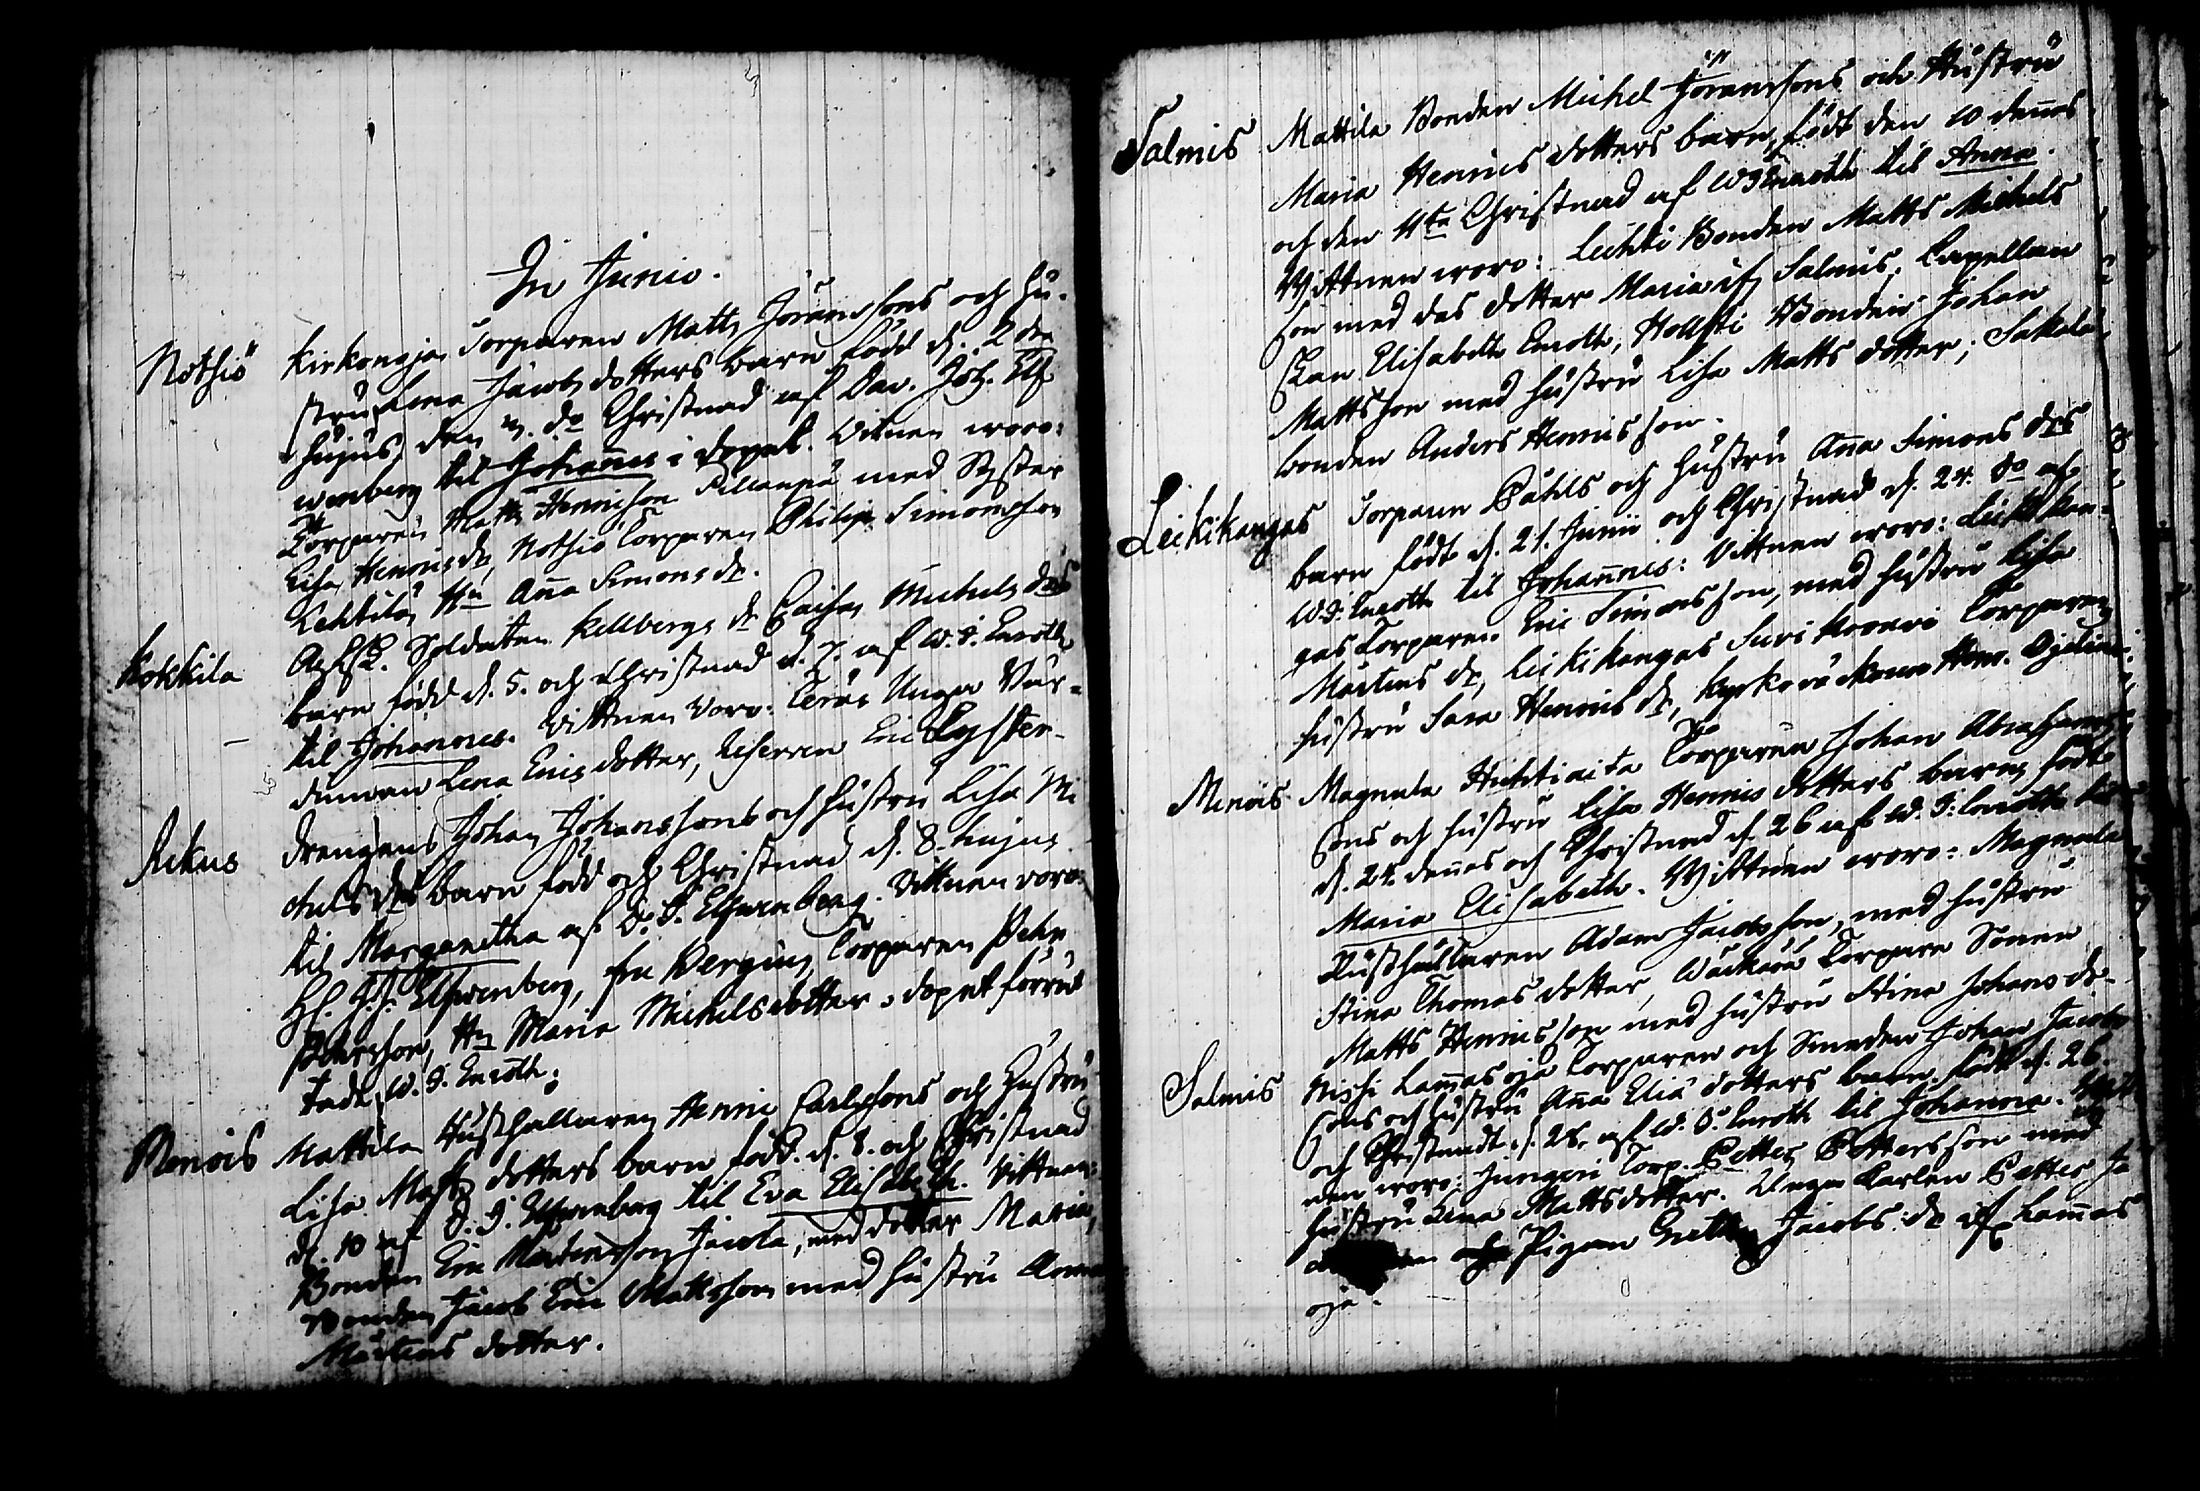 In Junio.
Notsiö Kirkonoja Torparen Matts Jöranssons och hu-
stru Lena Jacobs dotters barn född d. 2 dre
hujus, den 3. do Christnad af Dav. Joh. Elf-
wenberg til Johannes i dopet. Vitnen woro:
Torparen Matts Henricson Pellanpä med Syster
Lisa Henricsdr, Notsiö Torparen Philip Simonsson
Lehtilä Hu Ana Simonsdr.
Kokkila Afsk. Soldaten Kellbergs dr Caisas Michels drs
barn född d. 5. och Christnad d. 7. af W. I. Enroth
til Johannes. Vittnen voro: Unga
Lena Erics dotter, Reserven Eric Tyster.
Rekus Drengens Johan Johanssons och hustru Lisa Mi
chels drs barn född och Christnad d. 8. hujus
til Margaretha af D. J. Elfwenberg. Vittnen voro:
J. Elfwenberg, fru Bergius, Torparen Pehr
Pehrsson, Hu Maria Michelsdotter, dopet förrät
tade W. I. Enroth.
Menois Mattila Rusthållaren Henric Carlssons och Hustru
Lisa Matts dotters barn född. d. 8. och Christnad
d. 10 af D. J. Elfwenberg til Eva Elisabeth. Vittnen:
Bonden Eric Mårtensson Jacola, med dotter Maria,
Bonden Jacob Eric Mattsson med hustru Anna
Mårtens dotter.
Salmis Mattila Bonden Michel Jöranssons och Hustru
Maria Henrics dotters barn, födt den 10 dennes
och den 11te Christnad af W I Enroth til Anna.
Wittnen woro: Lechti Bonden Matts Michels
son med des dotter Maria if. Salmis, Capellan
skan Elisabeth Enroth, Hollsti Bonden Johan
Mattsson med hustru Lisa Matts dotter; Sakola
bonden Anders Henricsson.
Leikikangas Torparen Påhls och hustru Ana Simons drs
barn födt d. 21. Junii och Christnad d. 24. do af
W. I. Enroth til Johannes: Vittnen woro: Leikikan-
gas Torparen Eric Simonsson, med hustru Lisa
Mårtens dr, Leikikangas Torparens
hustru Sara Henrics dr, Henr.
Menois Magnula Huhtiaita Torparen Johan Abrahams
sons och hustru Lisa Henrics dotters barn, födt
d. 24. dennes och Christnad d. 26 af W. I. Enroth til
Maria Elisabeth. Wittnen woro: Magnula
Rusthållaren Adam Jacobsson, med hustru
Stina Thomas dotter, Torpare Sonen
Matts Henricsson med hustru Stina Johans dr.
Salmis Nissi Lammasoja Torparen och Smeden Johan Jacobs
sons och hustru Ana Elia dotters barn, födt d. 26.
och Christnadt d. 28. af W. I. Enroth til Johanna. Witt
nen woro: Jungeri Torp. Petter Pettersson med
hustru Lena Mattsdotter. Unga Karlen Petter Ja
Pigan Greta Jacobs dr if. Lammas
oja.